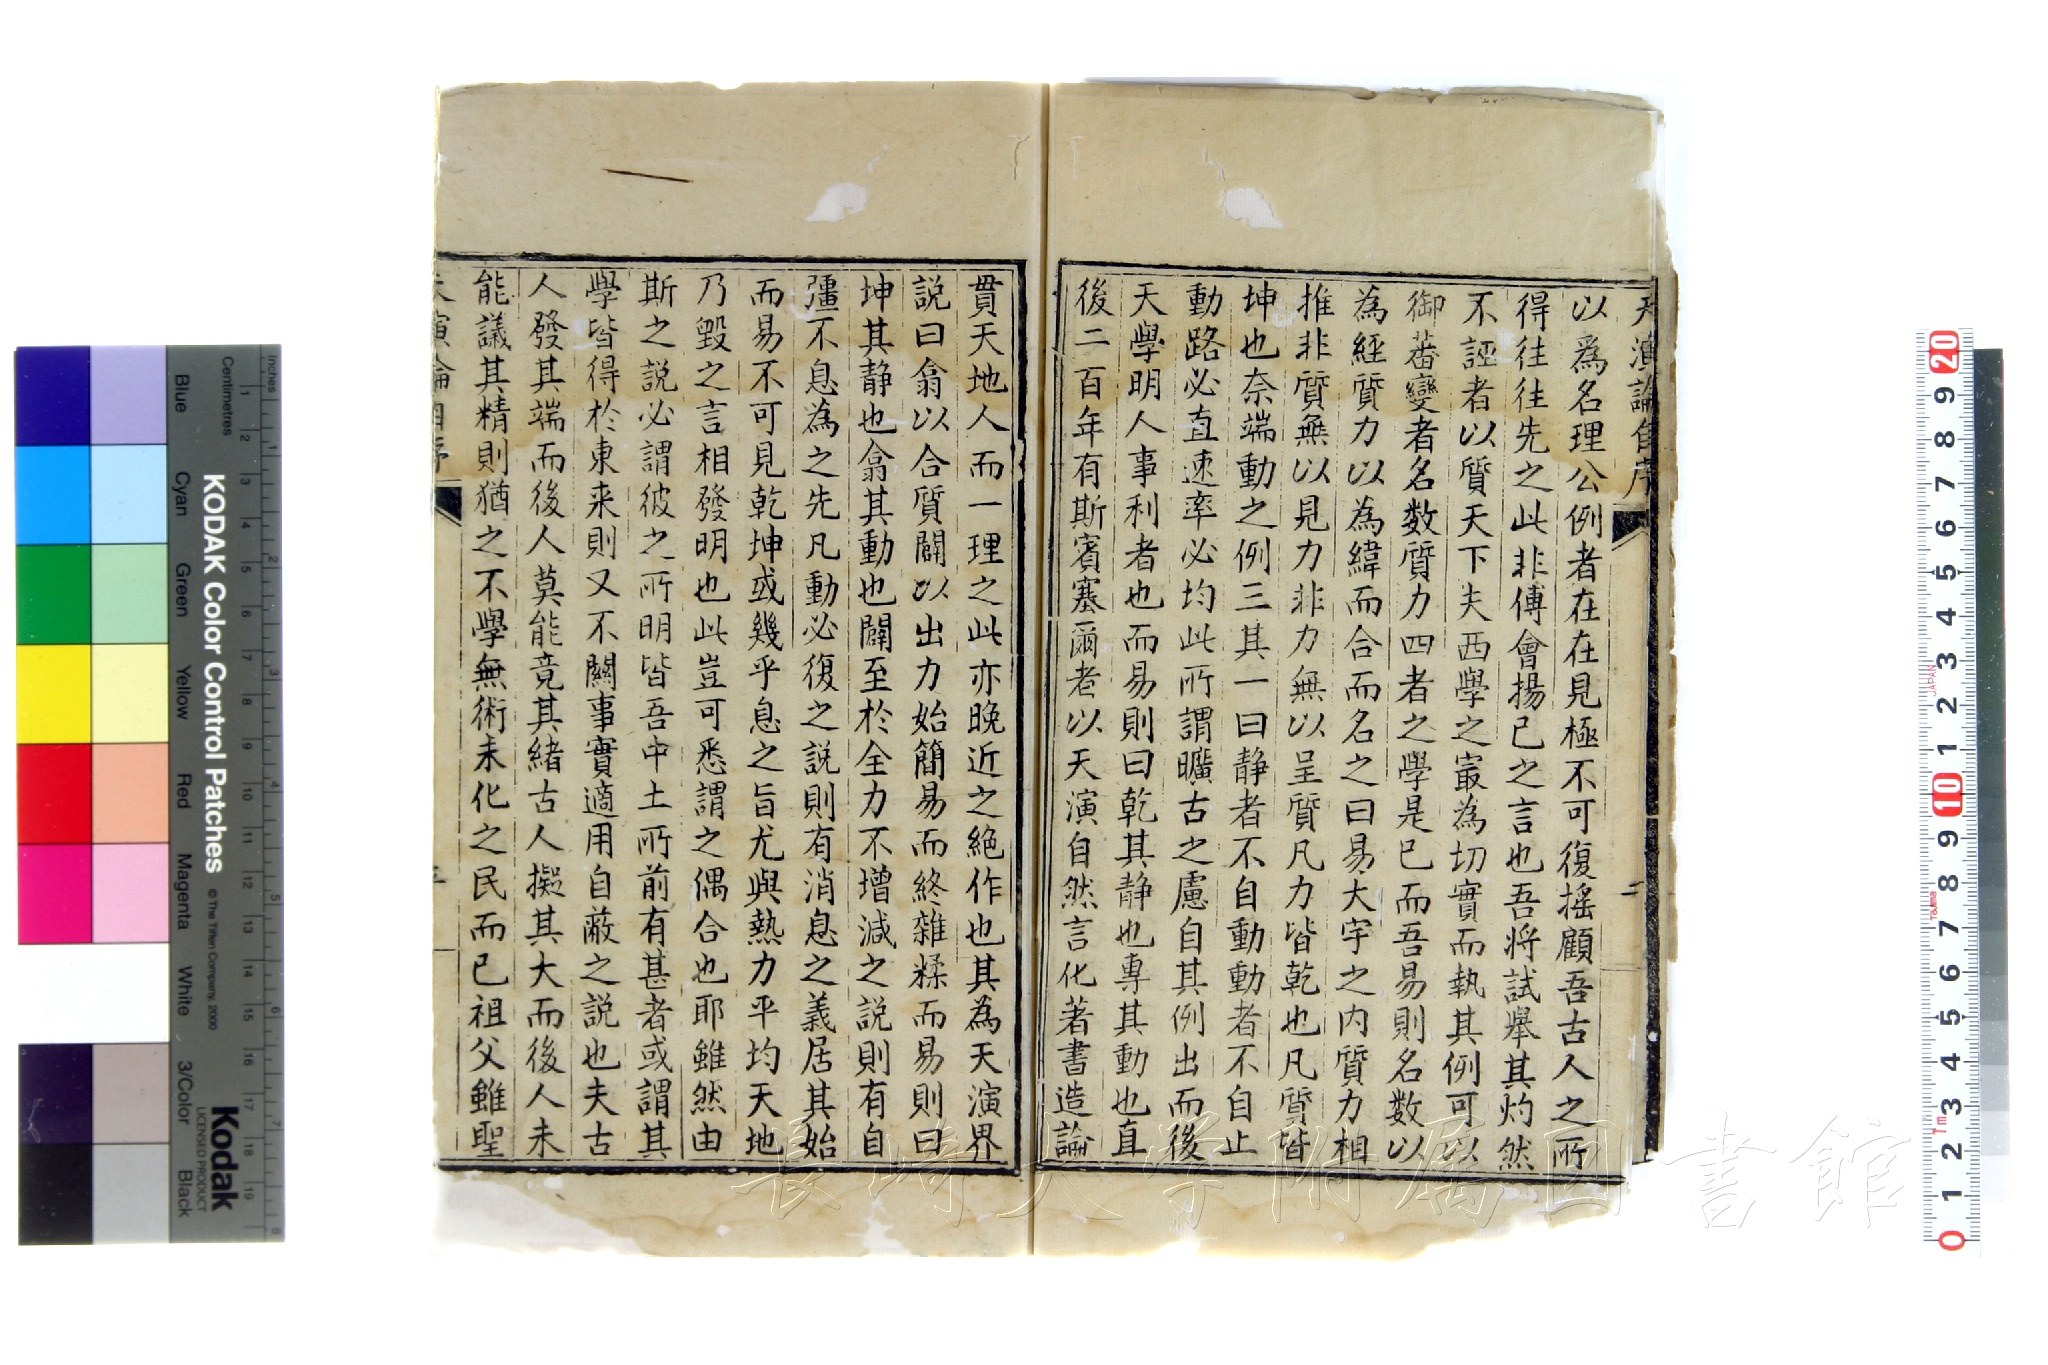 天演論自序
以為名理公例者在在見極不可復搖顧吾古人之所
得往往先之此非傅會揚己之言也吾將試舉其灼然
不誣者以質天下夫西學之最為切實而執其例可以
御蕃變者名數質力四者之學是已而吾易則名數以
為經質力以為緯而合而名之曰易大宇之內質力相
推非質無以見力非力無以呈質凡力皆乾也凡質皆
坤也奈端動之例三其一曰靜者不自動動者不自止
動路必直速率必均此所謂曠古之慮自其例出而後
天學明人事利者也而易則曰乾其靜也專其動也直
後二百年有斯賓塞爾者以天演自然言化著書造論
貫天地人而一理之此亦晚近之絕作也其為天演界
說曰翕以合質闢以出力始簡易而終雜糅而易則曰
坤其靜也翕其動也闢至於全力不增減之說則有自
彊不息為之先凡動必復之說則有消息之義居其始
而易不可見乾坤或幾乎息之旨尤與熱力平均天地
乃毀之言相發明也此豈可悉謂之偶合也耶雖然由
斯之說必謂彼之所明皆吾中土所前有甚者或謂其
學皆得於東来則又不關事實適用自蔽之說也夫古
人發其端而後人莫能竟其緒古人擬其大而後人未
能議其精則猶之不學無術未化之民而已祖父雖聖
天演論自序
二
KODAK Color Control Patches
© The Tiffen Company, 2000
Kodak
LICENSED PRODUCT
Inches
Centimetres
Blue
Cyan
Green
Yellow
Red
Magenta
White
3/Color
Black
1 2 3 4 5 6 7 8 9 10 11 12 13 14 15 16 17 18 19
20 9 8 7 6 5 4 3 2 1 10 9 8 7 6 5 4 3 2 1 0
JAPAN
Tajima
1m
長崎大学附属図書館